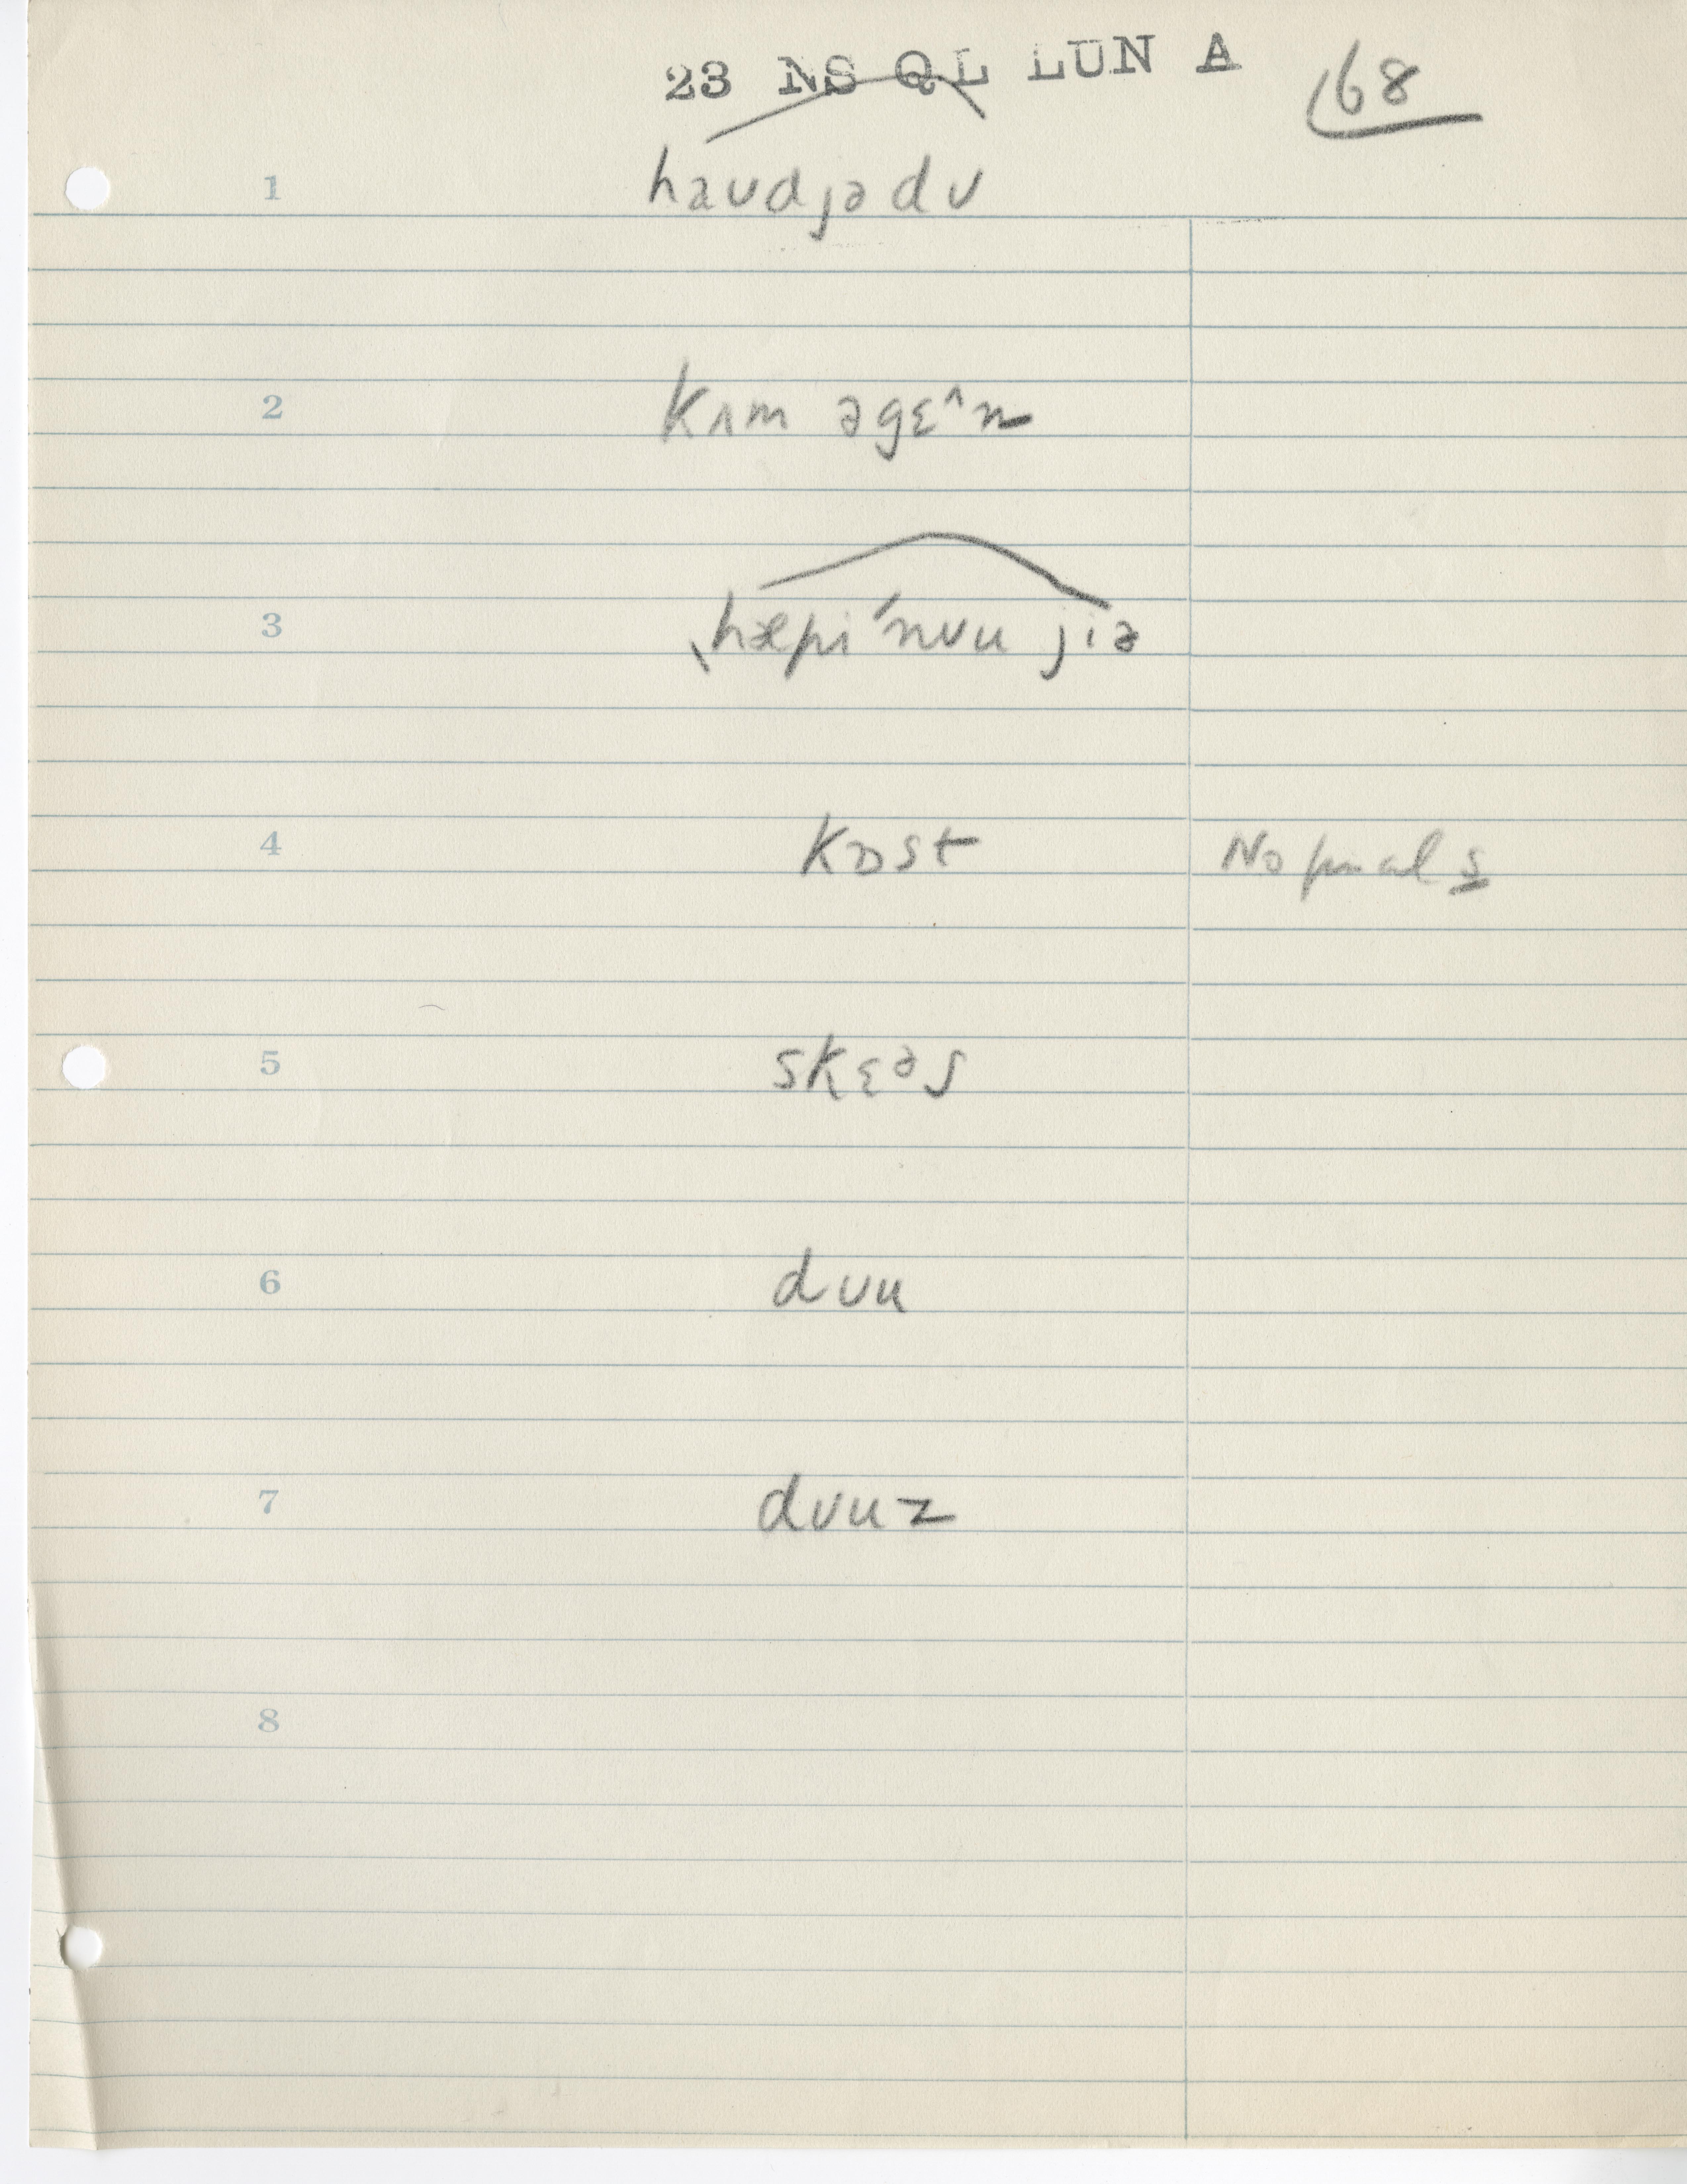 23 NS QL LUN A 68
1 hɜʊdjədʊ
2 kʌm əgɛ^n
3 ˎhæpɪ ˊnʊu jiə
4 kɒst No final s
5 skɛəs
6 dʊu
7 dʊuz
8